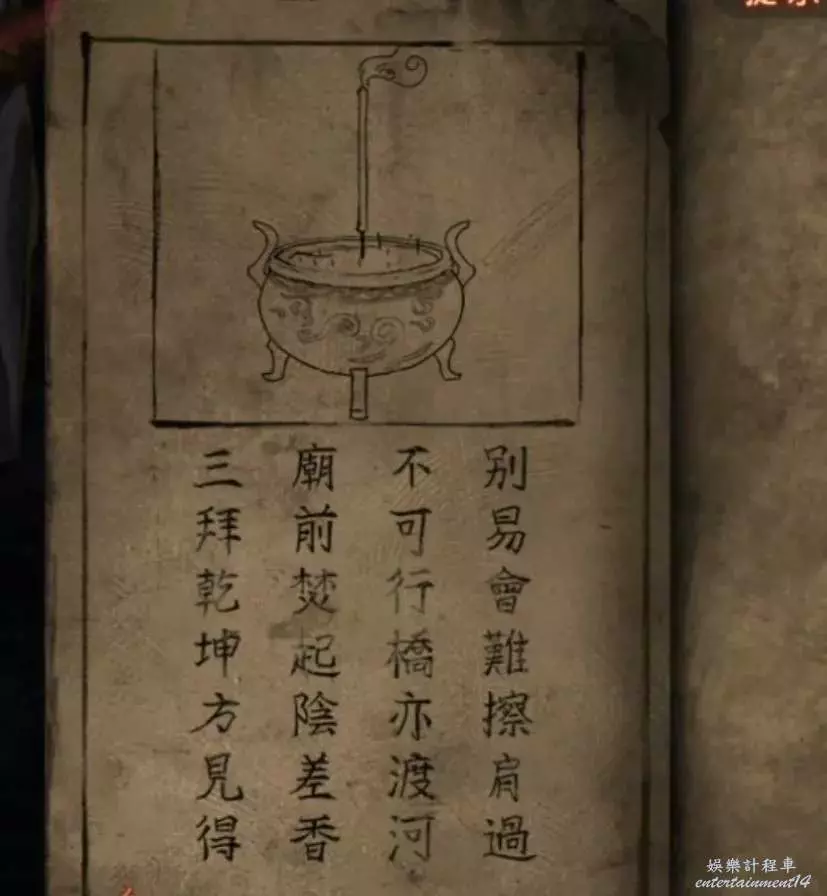 别易會難擦肩過
不可行橋亦渡河
廟前焚起陰差香
三拜乾坤方見得
娛樂計程車
entertainment14